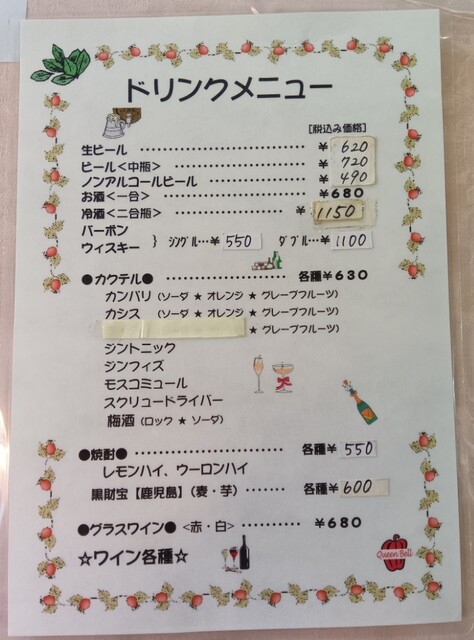 ドリンクメニュー
[税込み価格]
生ビール ････････････････････････ ￥ 620
ビール＜中瓶＞ ･･････････････････ ￥ 720
ノンアルコールビール ････････････ ￥ 490
お酒＜一合＞ ････････････････････ ￥６８０
冷酒＜二合瓶＞ ･･････････････････ ￥ 1150
バーボン
ウィスキー } ｼﾝｸﾞﾙ･･･￥ 550 ﾀﾞﾌﾞﾙ･･･￥ 1100
●カクテル● ････････････････ 各種￥６３０
カンパリ（ソーダ ★ オレンジ ★ グレープフルーツ）
カシス （ソーダ ★ オレンジ ★ グレープフルーツ）
★ グレープフルーツ）
ジントニック
ジンフィズ
モスコミュール
スクリュードライバー
梅酒（ロック ★ ソーダ）
●焼酎● ････････････････････ 各種￥ 550
レモンハイ、ウーロンハイ
黒財宝【鹿児島】（麦・芋）･･･････ 各種￥ 600
●グラスワイン● ＜赤・白＞ ･･････････ ￥６８０
☆ワイン各種☆
Queen Bell